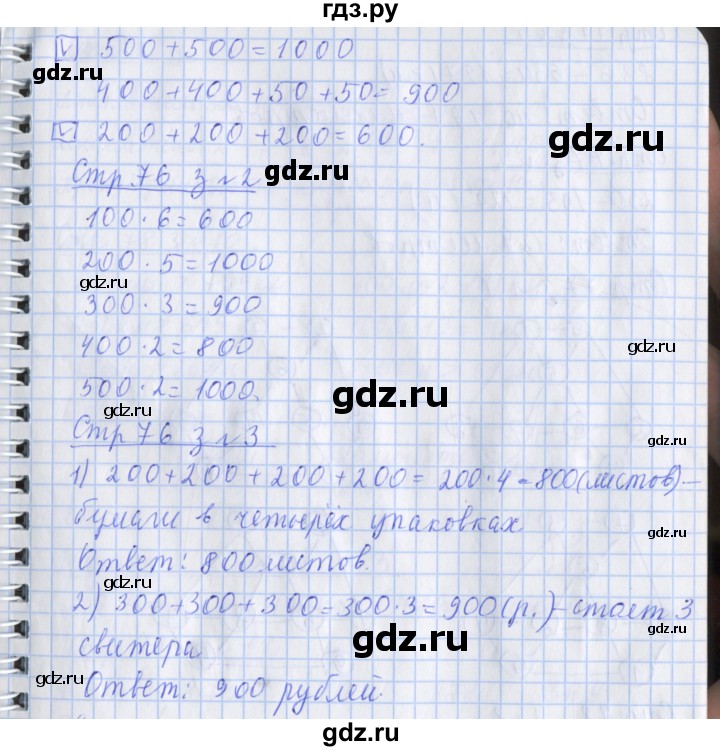 гдз.ру
v 500+500=1000
400+400+50+50=900
v 200+200+200=600.
gdz.ru
Стр 76 з №2 gdz.ru
100·6=600
200·5=1000
gdz.ru
gdz.ru
300·3=900
gdz.ru
400·2=800
gdz.ru
500·2=1000.
gdz.ru
Стр 76 з №3
gdz.ru
1) 200+200+200+200=200·4=800(листов)–
бумаги в четырёх упаковках
gdz.ru
Ответ: 800 листов.
gdz.ru
2) 300+300+300=300·3=900(р.)–стоят 3
gdz.ru
свитера
gdz.ru
gdz.ru
Ответ: 900 рублей.
gdz.ru